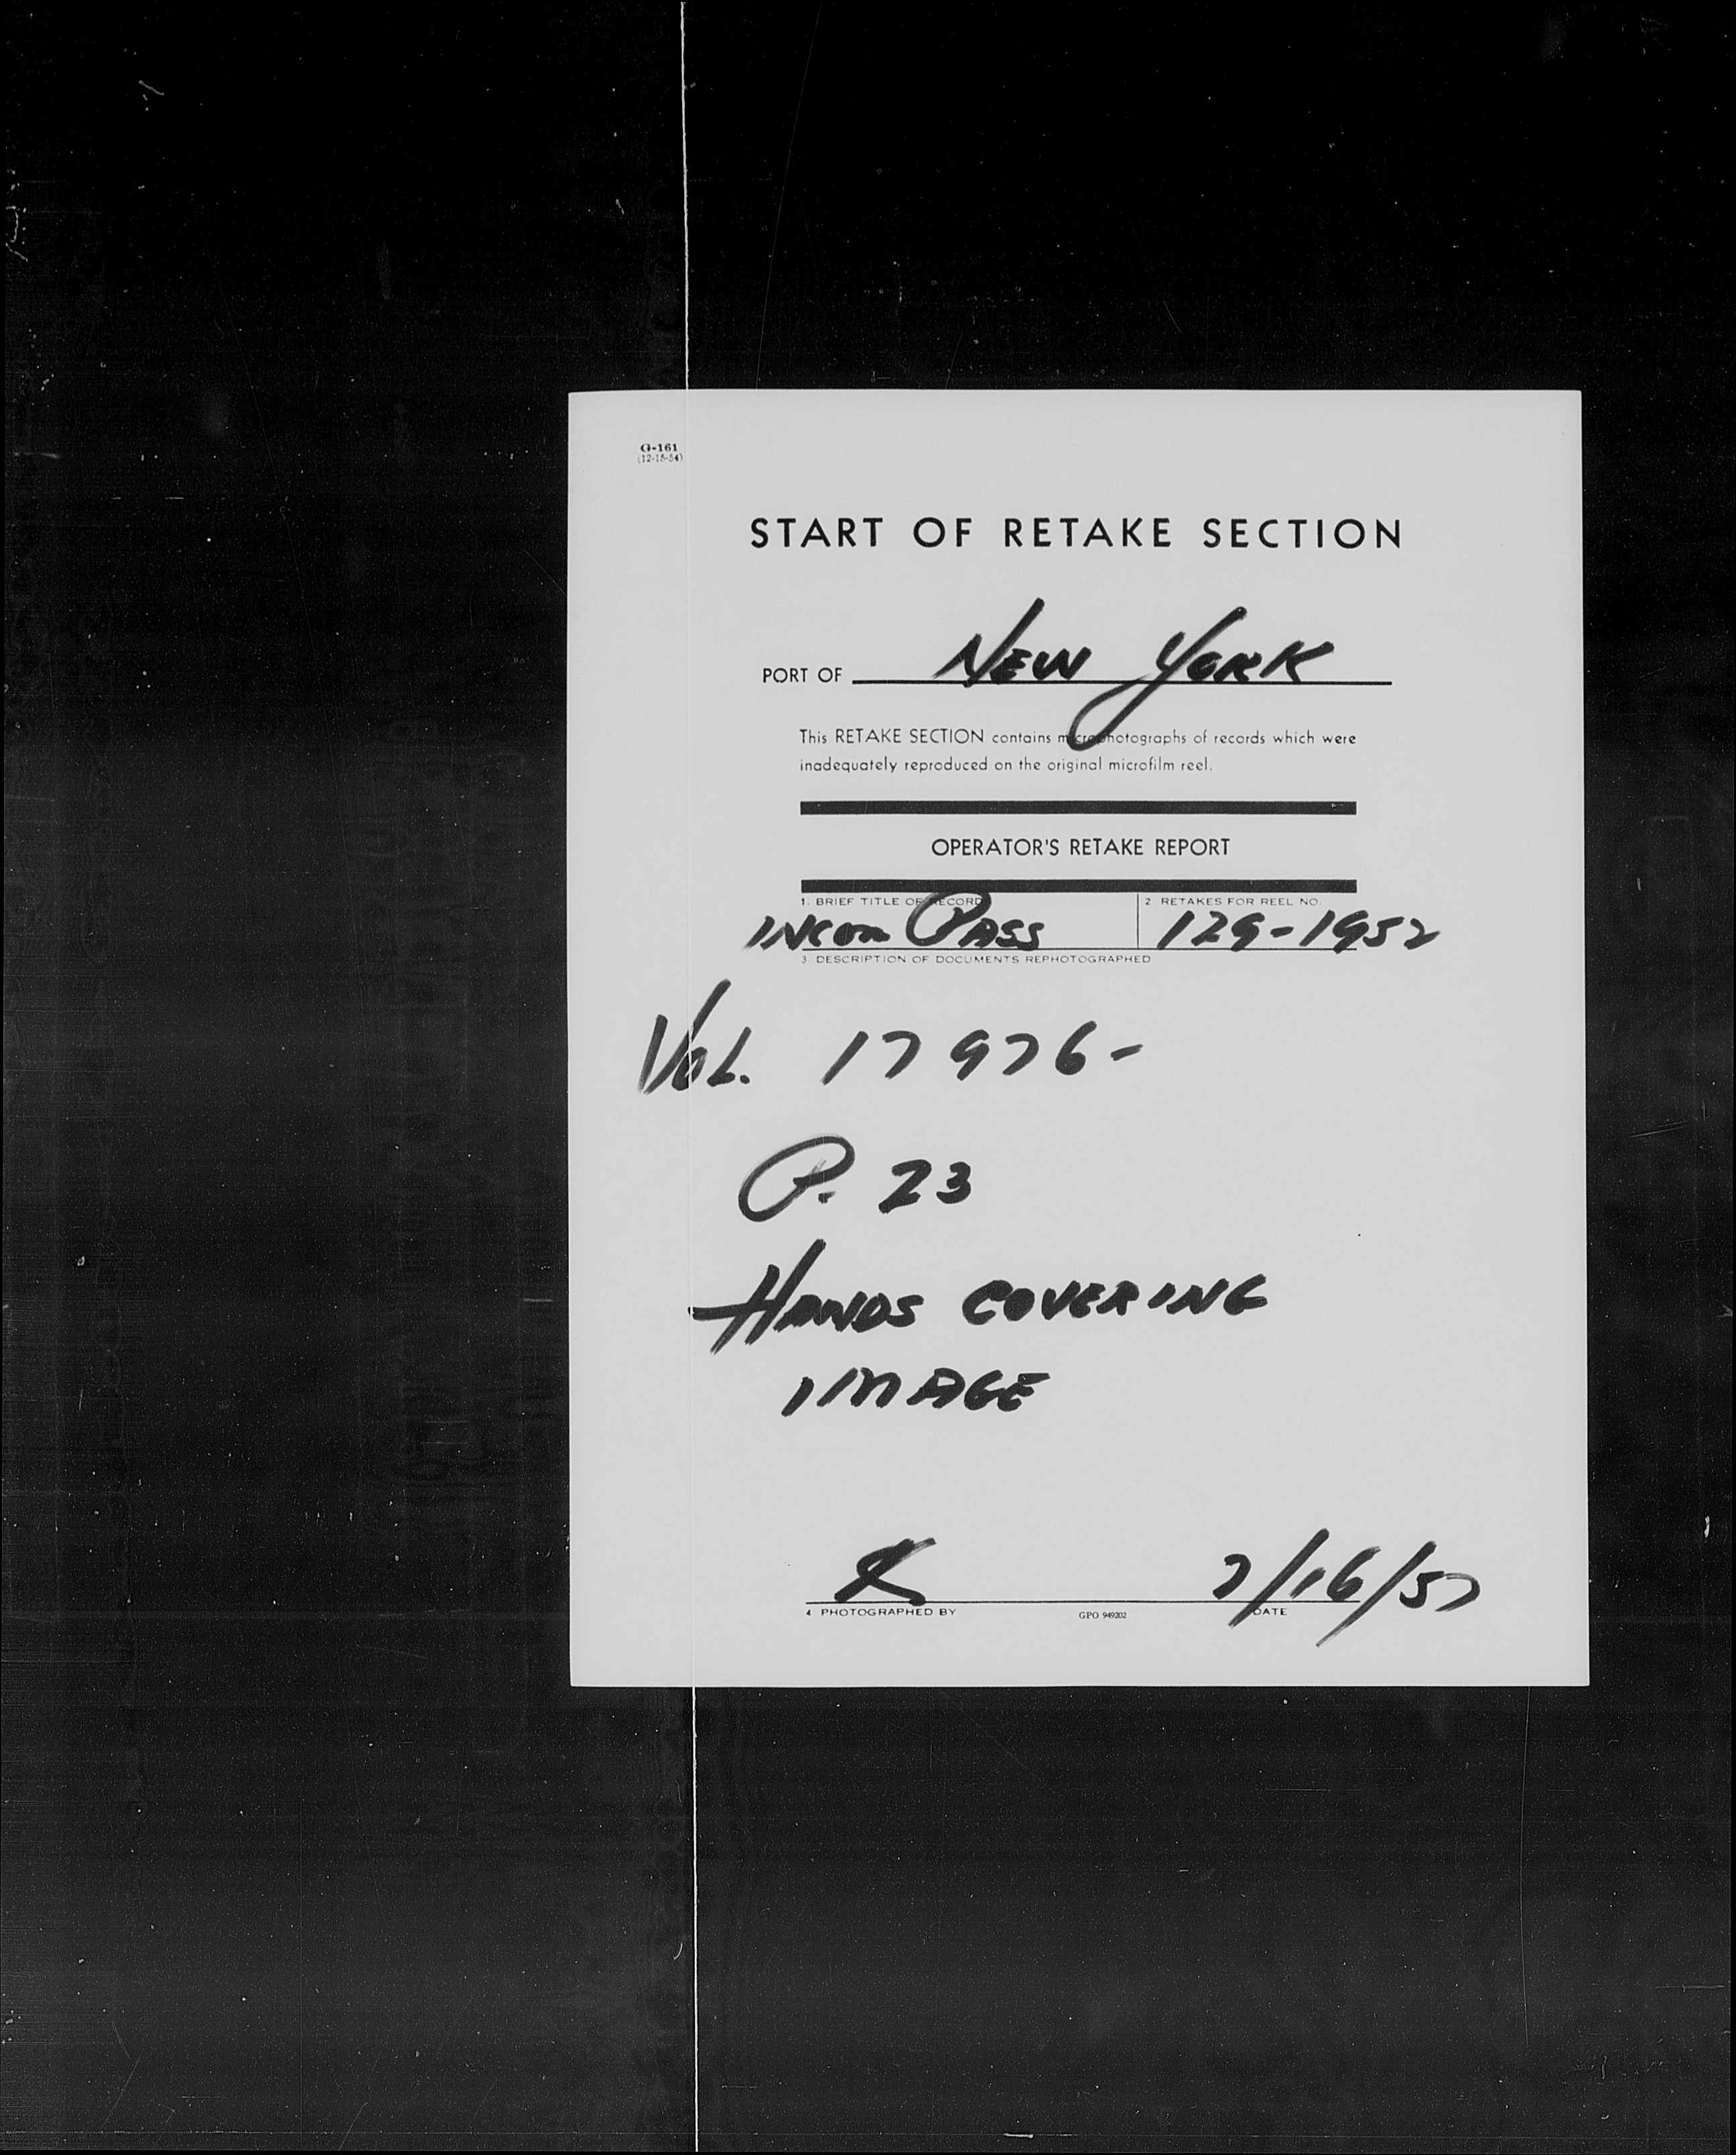 G-161
(12-15-54)
START OF RETAKE SECTION
PORT OF NEW YORK
This RETAKE SECTION contains microphotographs of records which were
inadequately reproduced on the original microfilm reel.
OPERATOR'S RETAKE REPORT
1. BRIEF TITLE OF RECORDS
2. RETAKES FOR REEL NO.
INCOM PASS
129-1952
3. DESCRIPTION OF DOCUMENTS REPHOTOGRAPHED
VOL. 17976-
P. 23
HANDS COVERING
IMAGE
7/16/57
4 PHOTOGRAPHED BY
GPO 949202
DATE